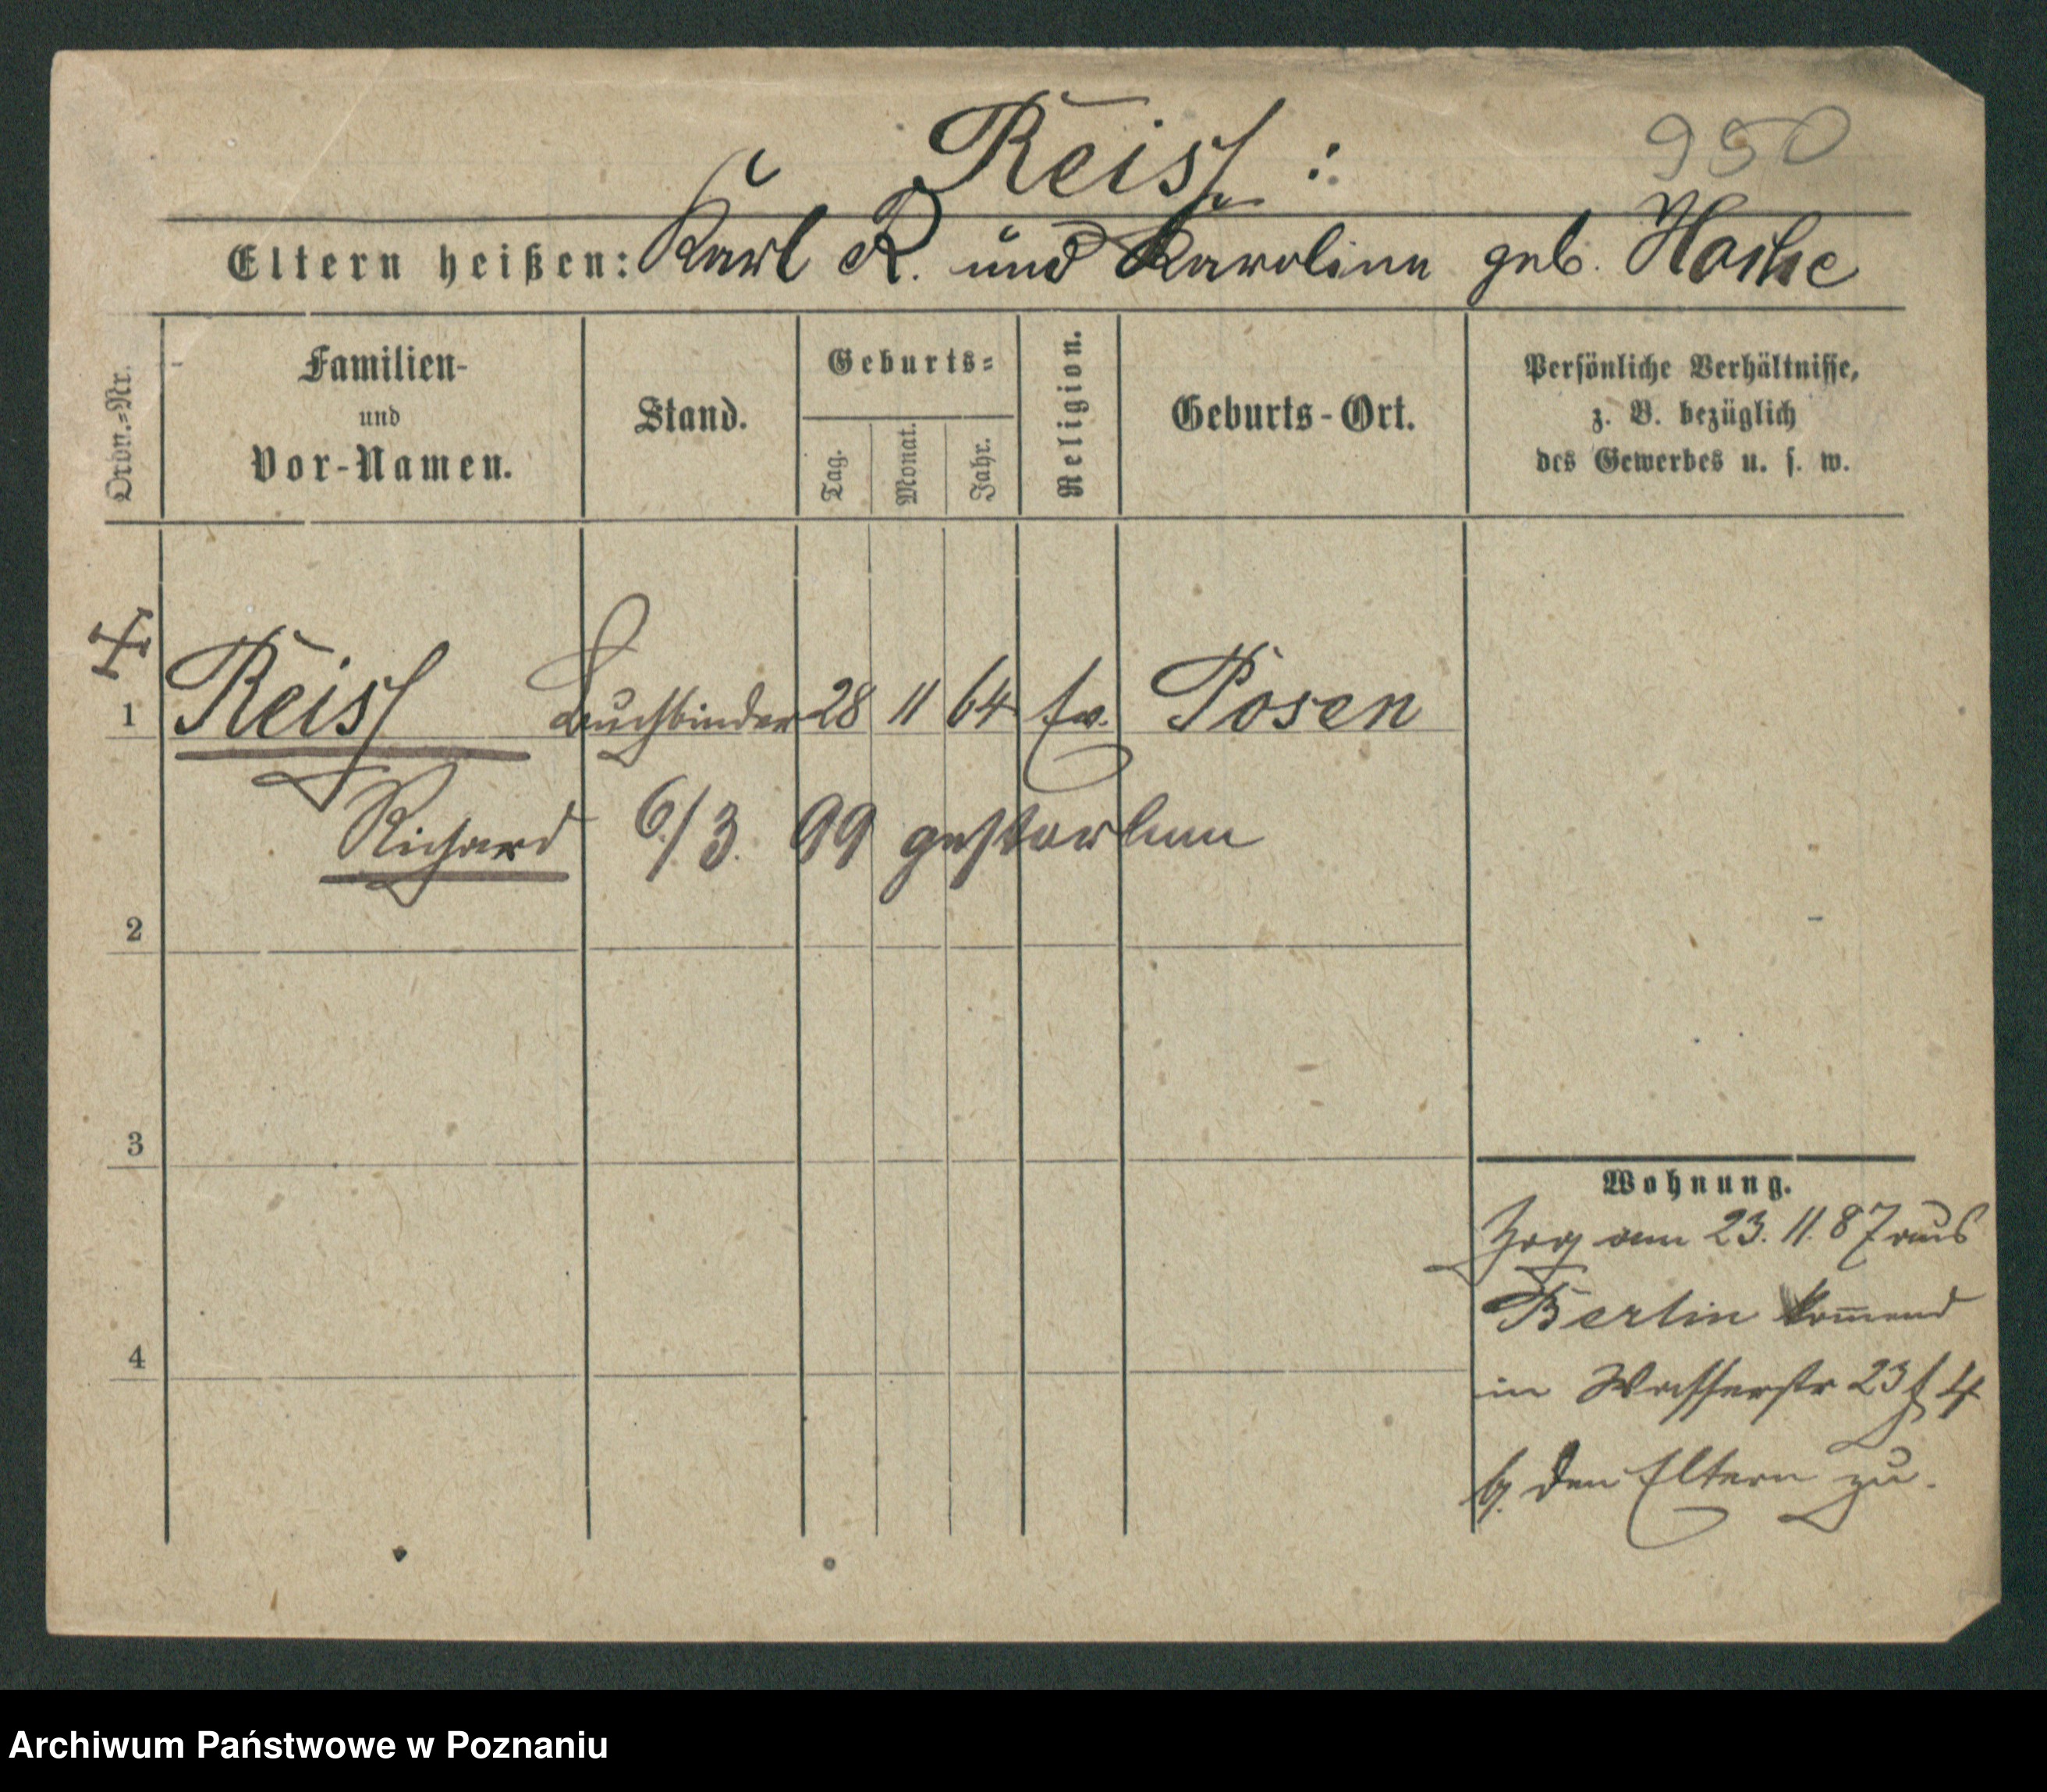 950
Reiss:
Eltern heißen: Karl R. und Karoline geb.
Ordn.=Nr.
Familien-
und
Vor-Namen.
Stand.
Geburts=
Tag.
Monat.
Jahr.
Religion.
Geburts-Ort.
Persönliche Verhältnisse,
z. B. bezüglich
des Gewerbes u. s. w.
1 Reiss Buchbinder 28 11 64 Ev. Posen
Richard 6/3. 99 gestorben
2
3
4
Wohnung.
Zog am 23. 11. 87 aus
Berlin kom̅end
in Wasserstr 23 4
b. den Eltern zu.
Archiwum Państwowe w Poznaniu